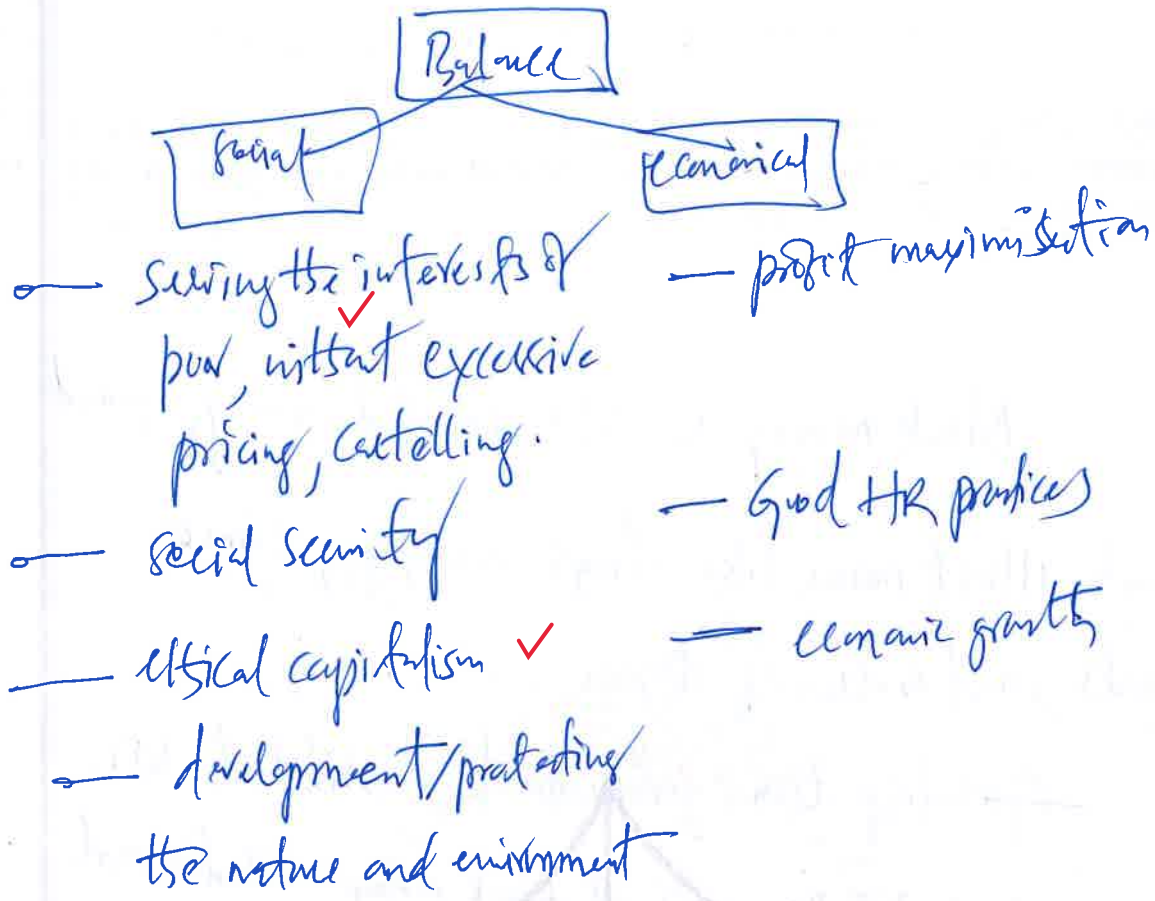 Balance
social
economical
— serving the interests of
poor, without excessive
pricing, cartelling.
— social security
— ethical capitalism
— development/protecting
the nature and environment
— profit maximisation
— Good HR practices
— economic growth